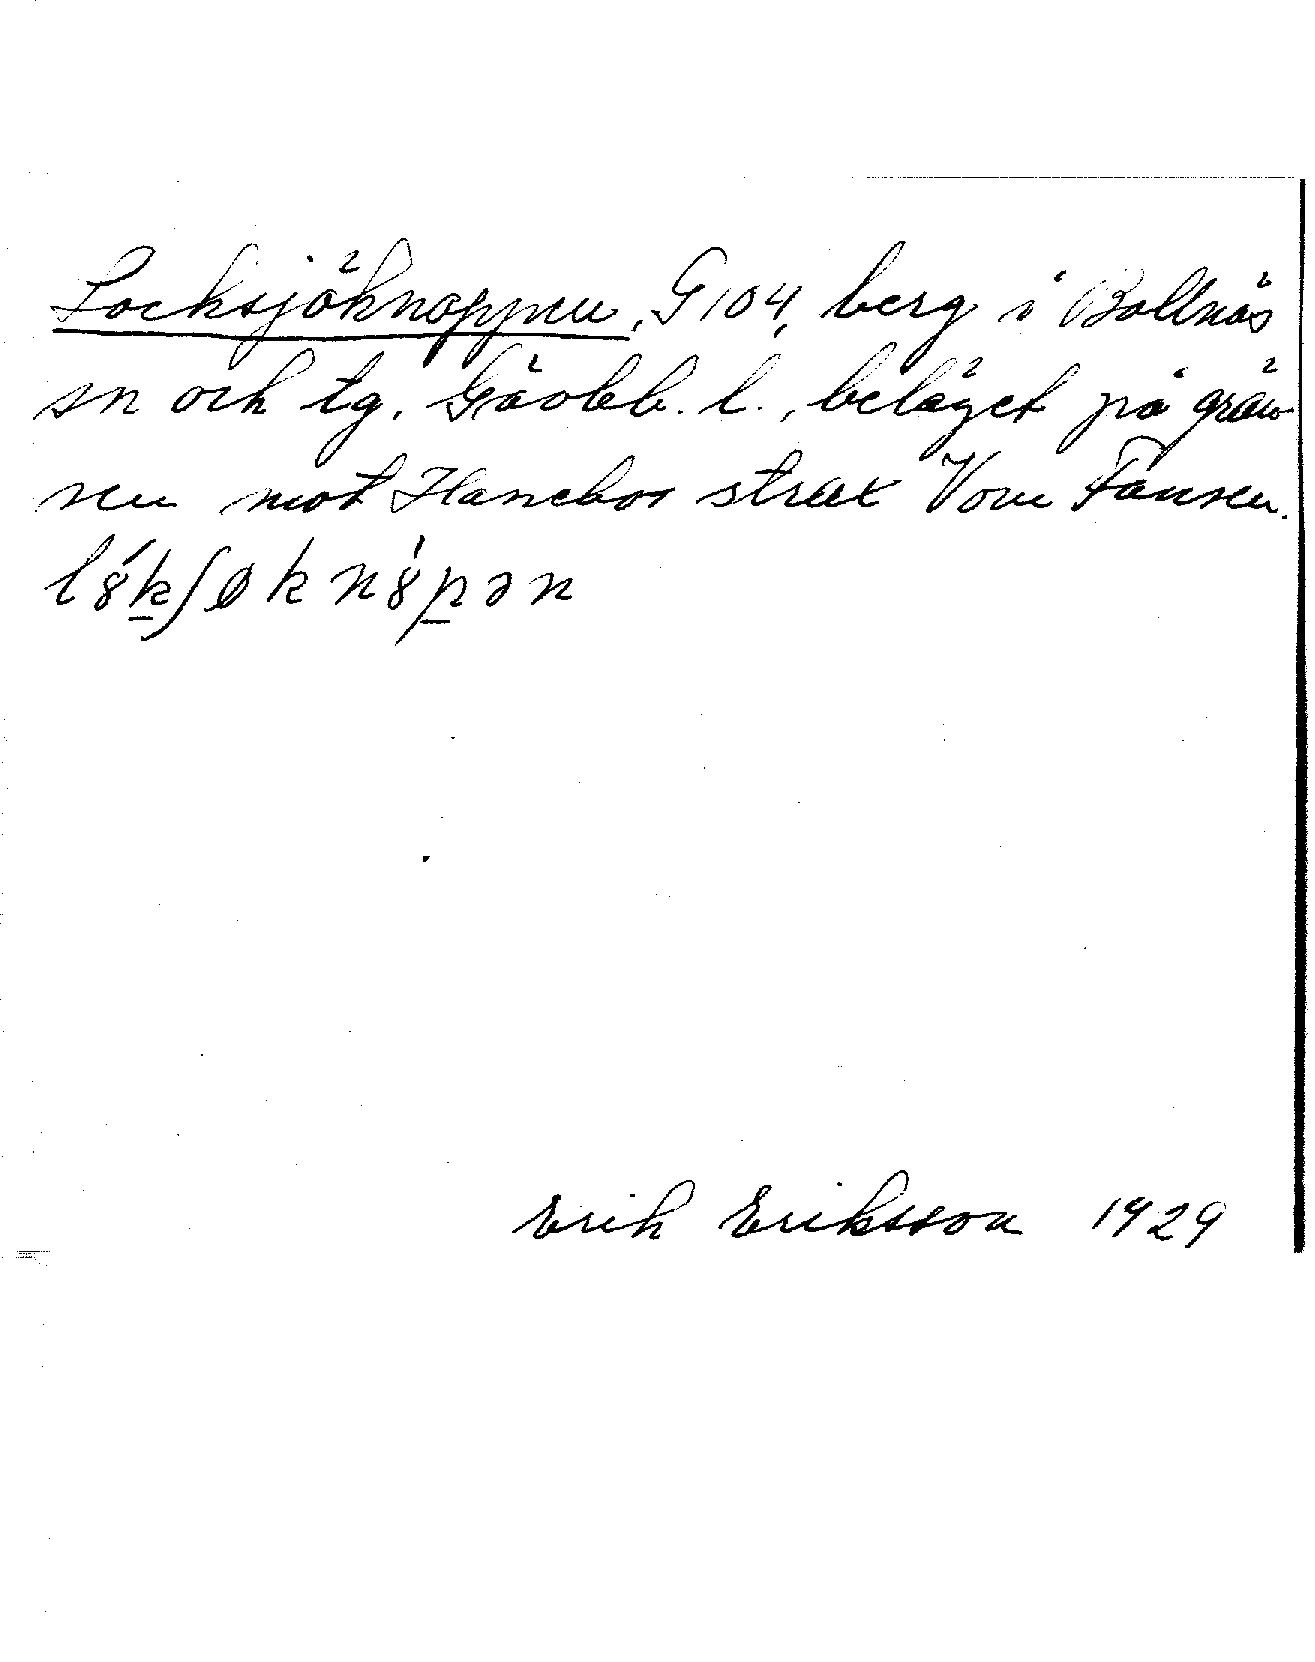 Locksjöknoppen, G 104, berg i Bollnäs
sn och tg, Gävleb. l., beläget på grän-
sen mot Hanebo, strax V om Fansen.
lȣ́kʃøknȣ̀pən
Erik Eriksson 1929